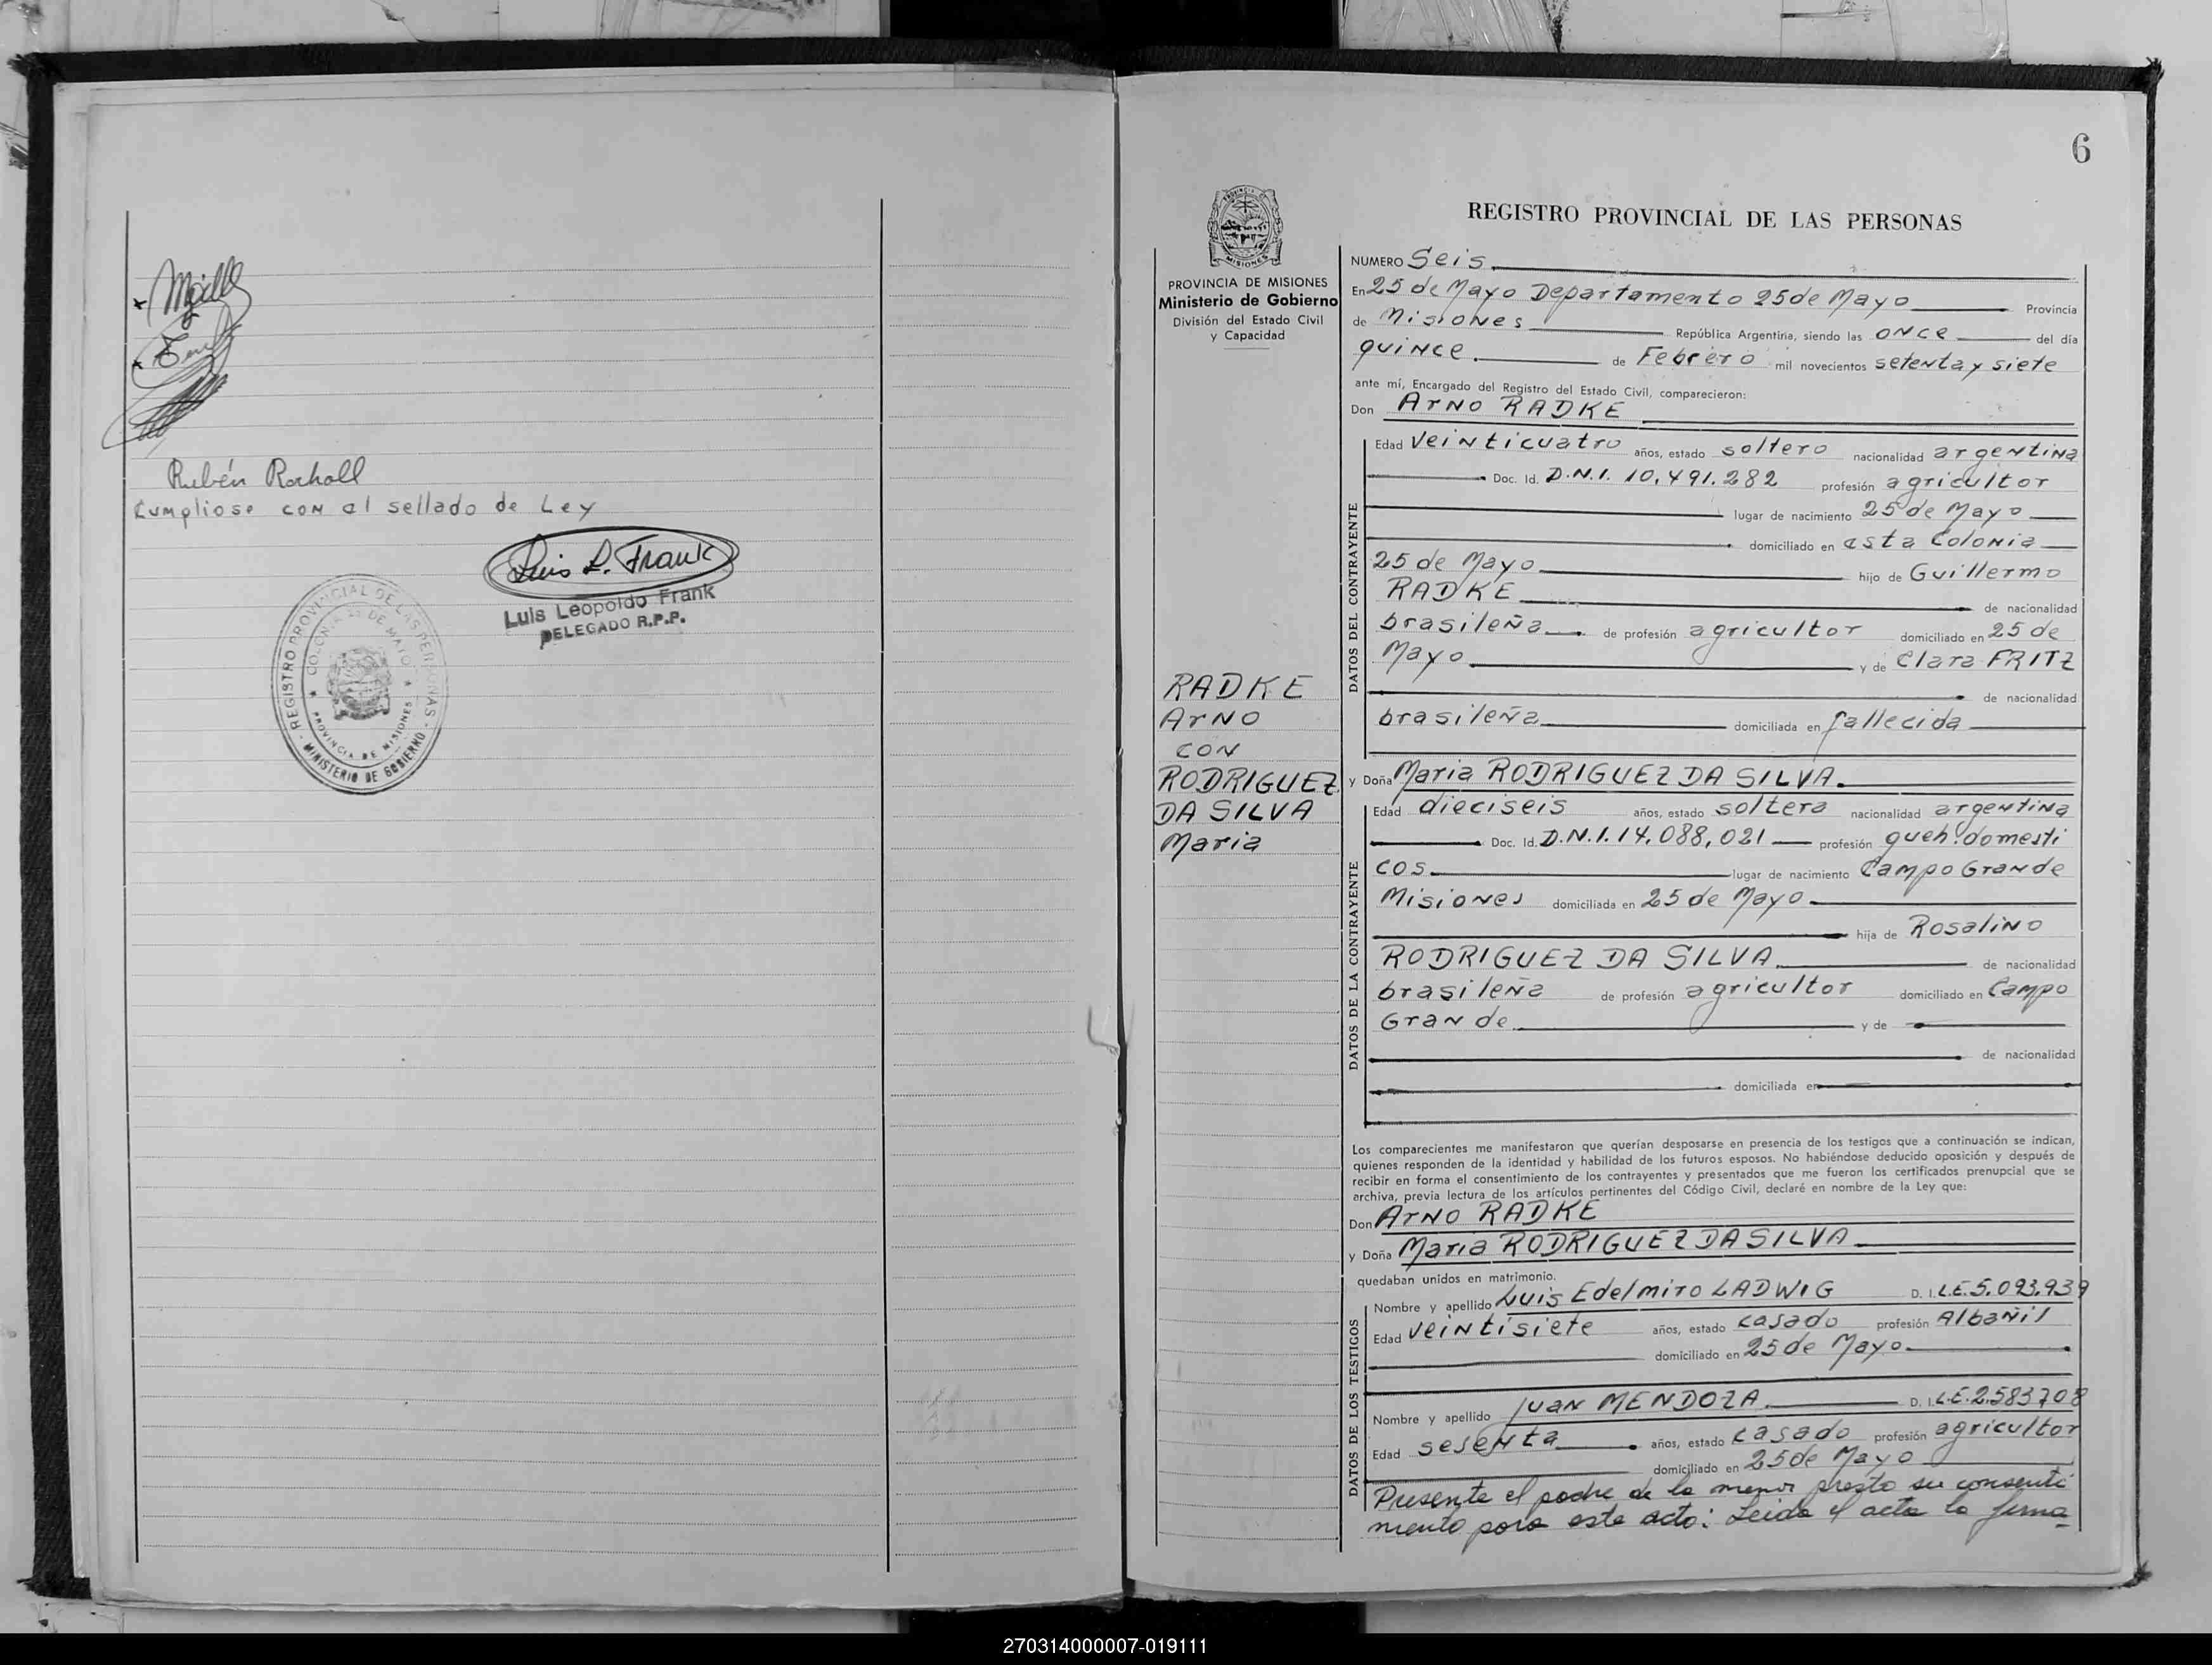 Rubén Rochall
Cumpliose con el sellado de Ley
Luis L. Frank
Luis Leopoldo Frank
DELEGADO R.P.P.
REGISTRO PROVINCIAL DE LAS PERSONAS - MINISTERIO DE GOBIERNO -
COLONIA 25 DE MAYO ★ PROVINCIA DE MISIONES ★
6
MISIONES
PROVINCIA DE MISIONES
Ministerio de Gobierno
División del Estado Civil
y Capacidad
RADKE
Arno
con
RODRIGUEZ
DA SILVA
Maria
REGISTRO PROVINCIAL DE LAS PERSONAS
NUMERO Seis
En 25 de Mayo Departamento 25 de Mayo Provincia
de Misiones República Argentina, siendo las once del día
quince de Febrero mil novecientos setenta y siete
ante mí, Encargado del Registro del Estado Civil, comparecieron:
Don Arno RADKE
DATOS DEL CONTRAYENTE
Edad Veinticuatro años, estado soltero nacionalidad argentina
Doc. Id. D.N.I. 10.491.282 profesión agricultor
lugar de nacimiento 25 de Mayo
domiciliado en esta Colonia
25 de Mayo hijo de Guillermo
RADKE de nacionalidad
brasileña de profesión agricultor domiciliado en 25 de
Mayo y de Clara FRITZ
de nacionalidad
brasileña domiciliada en fallecida
y Doña Maria RODRIGUEZ DA SILVA.
DATOS DE LA CONTRAYENTE
Edad dieciseis años, estado soltera nacionalidad argentina
Doc. Id. D.N.I. 14.088,021 profesión queh. domesti
cos. lugar de nacimiento Campo Grande
Misiones domiciliada en 25 de Mayo
hija de Rosalino
RODRIGUEZ DA SILVA de nacionalidad
brasileña de profesión agricultor domiciliado en Campo
Grande y de
de nacionalidad
domiciliada en
Los comparecientes me manifestaron que querían desposarse en presencia de los testigos que a continuación se indican,
quienes responden de la identidad y habilidad de los futuros esposos. No habiéndose deducido oposición y después de
recibir en forma el consentimiento de los contrayentes y presentados que me fueron los certificados prenupcial que se
archiva, previa lectura de los artículos pertinentes del Código Civil, declaré en nombre de la Ley que:
Don Arno RADKE
y Doña Maria RODRIGUEZ DA SILVA
quedaban unidos en matrimonio.
DATOS DE LOS TESTIGOS
Nombre y apellido Luis Edelmiro LADWIG D. I. L.E. 5.093.939
Edad Veintisiete años, estado casado profesión Albañil
domiciliado en 25 de Mayo
Nombre y apellido Juan MENDOZA D. I. L.E. 2.583708
Edad sesenta años, estado casado profesión agricultor
domiciliado en 25 de Mayo
Presente el padre de la menor presto su consenti
miento para este acto: Leida el acta la firma
270314000007-019111